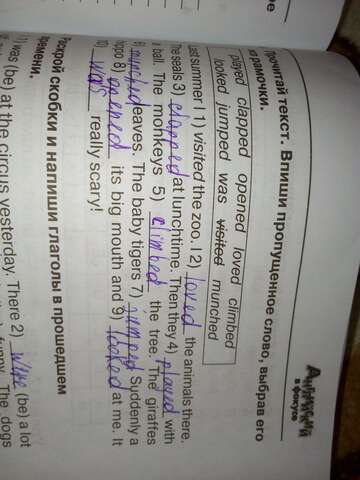 Английский
в фокусе
Прочитай текст. Впиши пропущенное слово, выбрав его
из рамочки.
played clapped opened loved climbed
looked jumped was visited munched
Last summer I 1) visited the zoo. I 2) loved the animals there.
The seals 3) clapped at lunchtime. Then they 4) played with
ball. The monkeys 5) climbed the tree. The giraffes
6) munched leaves. The baby tigers 7) jumped Suddenly a
hippo 8) opened its big mouth and 9) looked at me. It
10) was really scary!
Раскрой скобки и напиши глаголы в прошедшем
времени.
1) was (be) at the circus yesterday. There 2) were (be) a lot
funny. The dogs